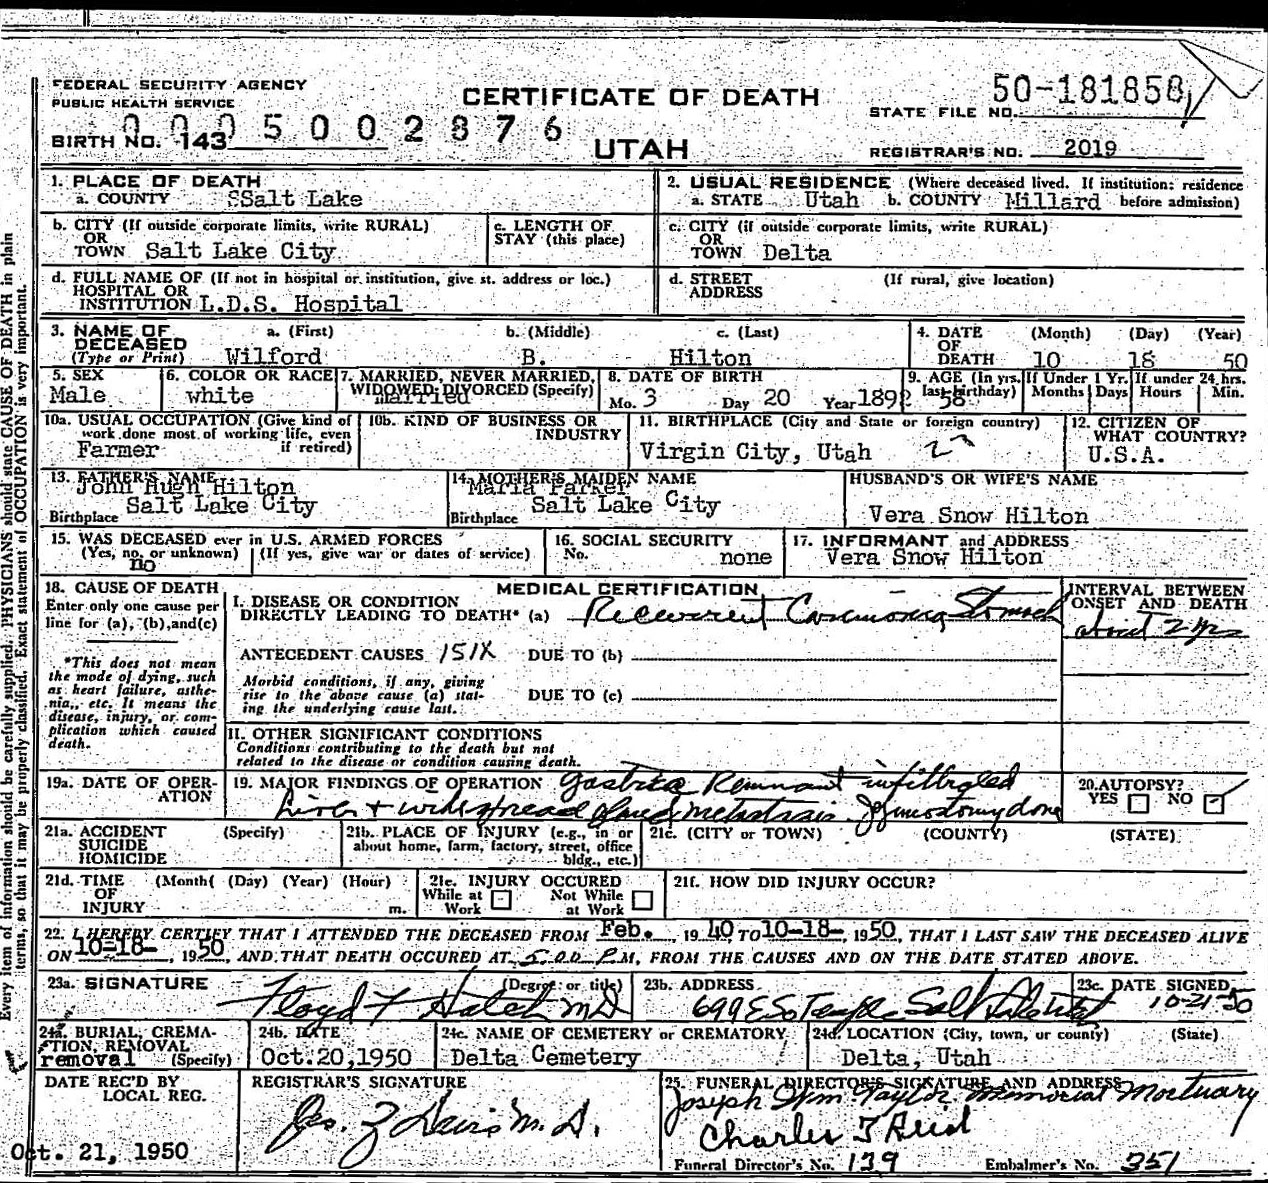 FEDERAL SECURITY AGENCY
PUBLIC HEALTH SERVICE
CERTIFICATE OF DEATH
STATE FILE NO. 50-181858
0005002876
BIRTH NO. 143
UTAH
REGISTRAR'S NO. 2019
1. PLACE OF DEATH
a. COUNTY SSalt Lake
2. USUAL RESIDENCE (Where deceased lived. If institution: residence before admission)
a. STATE Utah b. COUNTY Millard
b. CITY (If outside corporate limits, write RURAL)
OR
TOWN Salt Lake City
c. LENGTH OF
STAY (this place)
c. CITY (if outside corporate limits, write RURAL)
OR
TOWN Delta
d. FULL NAME OF (If not in hospital or institution, give st. address or loc.)
HOSPITAL OR
INSTITUTION L.D.S. Hospital
d. STREET (If rural, give location)
ADDRESS
3. NAME OF DECEASED
(Type or Print)
a. (First) b. (Middle) c. (Last)
Wilford B. Hilton
4. DATE OF DEATH
(Month) (Day) (Year)
10 18 50
5. SEX
Male
6. COLOR OR RACE
white
7. MARRIED, NEVER MARRIED,
WIDOWED, DIVORCED (Specify)
Married
8. DATE OF BIRTH
Mo. 3 Day 20 Year 1892
9. AGE (In yrs. last birthday) 58
If Under 1 Yr. Months Days
If under 24 hrs. Hours Min.
10a. USUAL OCCUPATION (Give kind of
work done most of working life, even
if retired)
Farmer
10b. KIND OF BUSINESS OR
INDUSTRY
11. BIRTHPLACE (City and State or foreign country)
Virgin City, Utah
12. CITIZEN OF
WHAT COUNTRY?
U.S.A.
13. FATHER'S NAME
John Hugh Hilton
Salt Lake City
Birthplace
14. MOTHER'S MAIDEN NAME
Maria Parker
Salt Lake City
Birthplace
HUSBAND'S OR WIFE'S NAME
Vera Snow Hilton
15. WAS DECEASED ever in U.S. ARMED FORCES
(Yes, no, or unknown) (If yes, give war or dates of service)
no
16. SOCIAL SECURITY
No. none
17. INFORMANT and ADDRESS
Vera Snow Hilton
18. CAUSE OF DEATH
Enter only one cause per
line for (a), (b), and (c)
*This does not mean
the mode of dying, such
as heart failure, asthe-
nia, etc. It means the
disease, injury, or com-
plication which caused
death.
MEDICAL CERTIFICATION
I. DISEASE OR CONDITION
DIRECTLY LEADING TO DEATH* (a) Recurrent Carcinoma Stomach
INTERVAL BETWEEN
ONSET AND DEATH
about 2 yrs
ANTECEDENT CAUSES 151X DUE TO (b)
Morbid conditions, if any, giving
rise to the above cause (a) stat-
ing the underlying cause last.
DUE TO (c)
II. OTHER SIGNIFICANT CONDITIONS
Conditions contributing to the death but not
related to the disease or condition causing death.
19a. DATE OF OPER-
ATION
19. MAJOR FINDINGS OF OPERATION Gastric Remnant infiltrated
Liver + widespread gland metastasis. Jejunostomy done
20. AUTOPSY?
YES NO
21a. ACCIDENT (Specify)
SUICIDE
HOMICIDE
21b. PLACE OF INJURY (e.g., in or
about home, farm, factory, street, office
bldg., etc.)
21c. (CITY or TOWN) (COUNTY) (STATE)
21d. TIME (Month( (Day) (Year) (Hour)
OF
INJURY m.
21e. INJURY OCCURED
While at Work Not While at Work
21f. HOW DID INJURY OCCUR?
22. I HEREBY CERTIFY THAT I ATTENDED THE DECEASED FROM Feb., 1940 TO 10-18-, 1950, THAT I LAST SAW THE DECEASED ALIVE
ON 10-18-, 1950, AND THAT DEATH OCCURED AT 5:00 P.M, FROM THE CAUSES AND ON THE DATE STATED ABOVE.
23a. SIGNATURE (Degree or title)
Floyd F Hatch M D
23b. ADDRESS
699 E So Temple Salt Lake
23c. DATE SIGNED
10-21-50
24a. BURIAL, CREMA-
TION, REMOVAL
removal (Specify)
24b. DATE
Oct.20,1950
24c. NAME OF CEMETERY or CREMATORY
Delta Cemetery
24d. LOCATION (City, town, or county) (State)
Delta, Utah
DATE REC'D BY
LOCAL REG.
Oct. 21, 1950
REGISTRAR'S SIGNATURE
Jos. Z Davis M. D.
25. FUNERAL DIRECTOR'S SIGNATURE AND ADDRESS
Joseph Wm Taylor Memorial Mortuary
Charles T Reid
Funeral Director's No. 139 Embalmer's No. 351
Every item of information should be carefully supplied. PHYSICIANS should state CAUSE OF DEATH in plain
terms, so that it may be properly classified. Exact statement of OCCUPATION is very important.